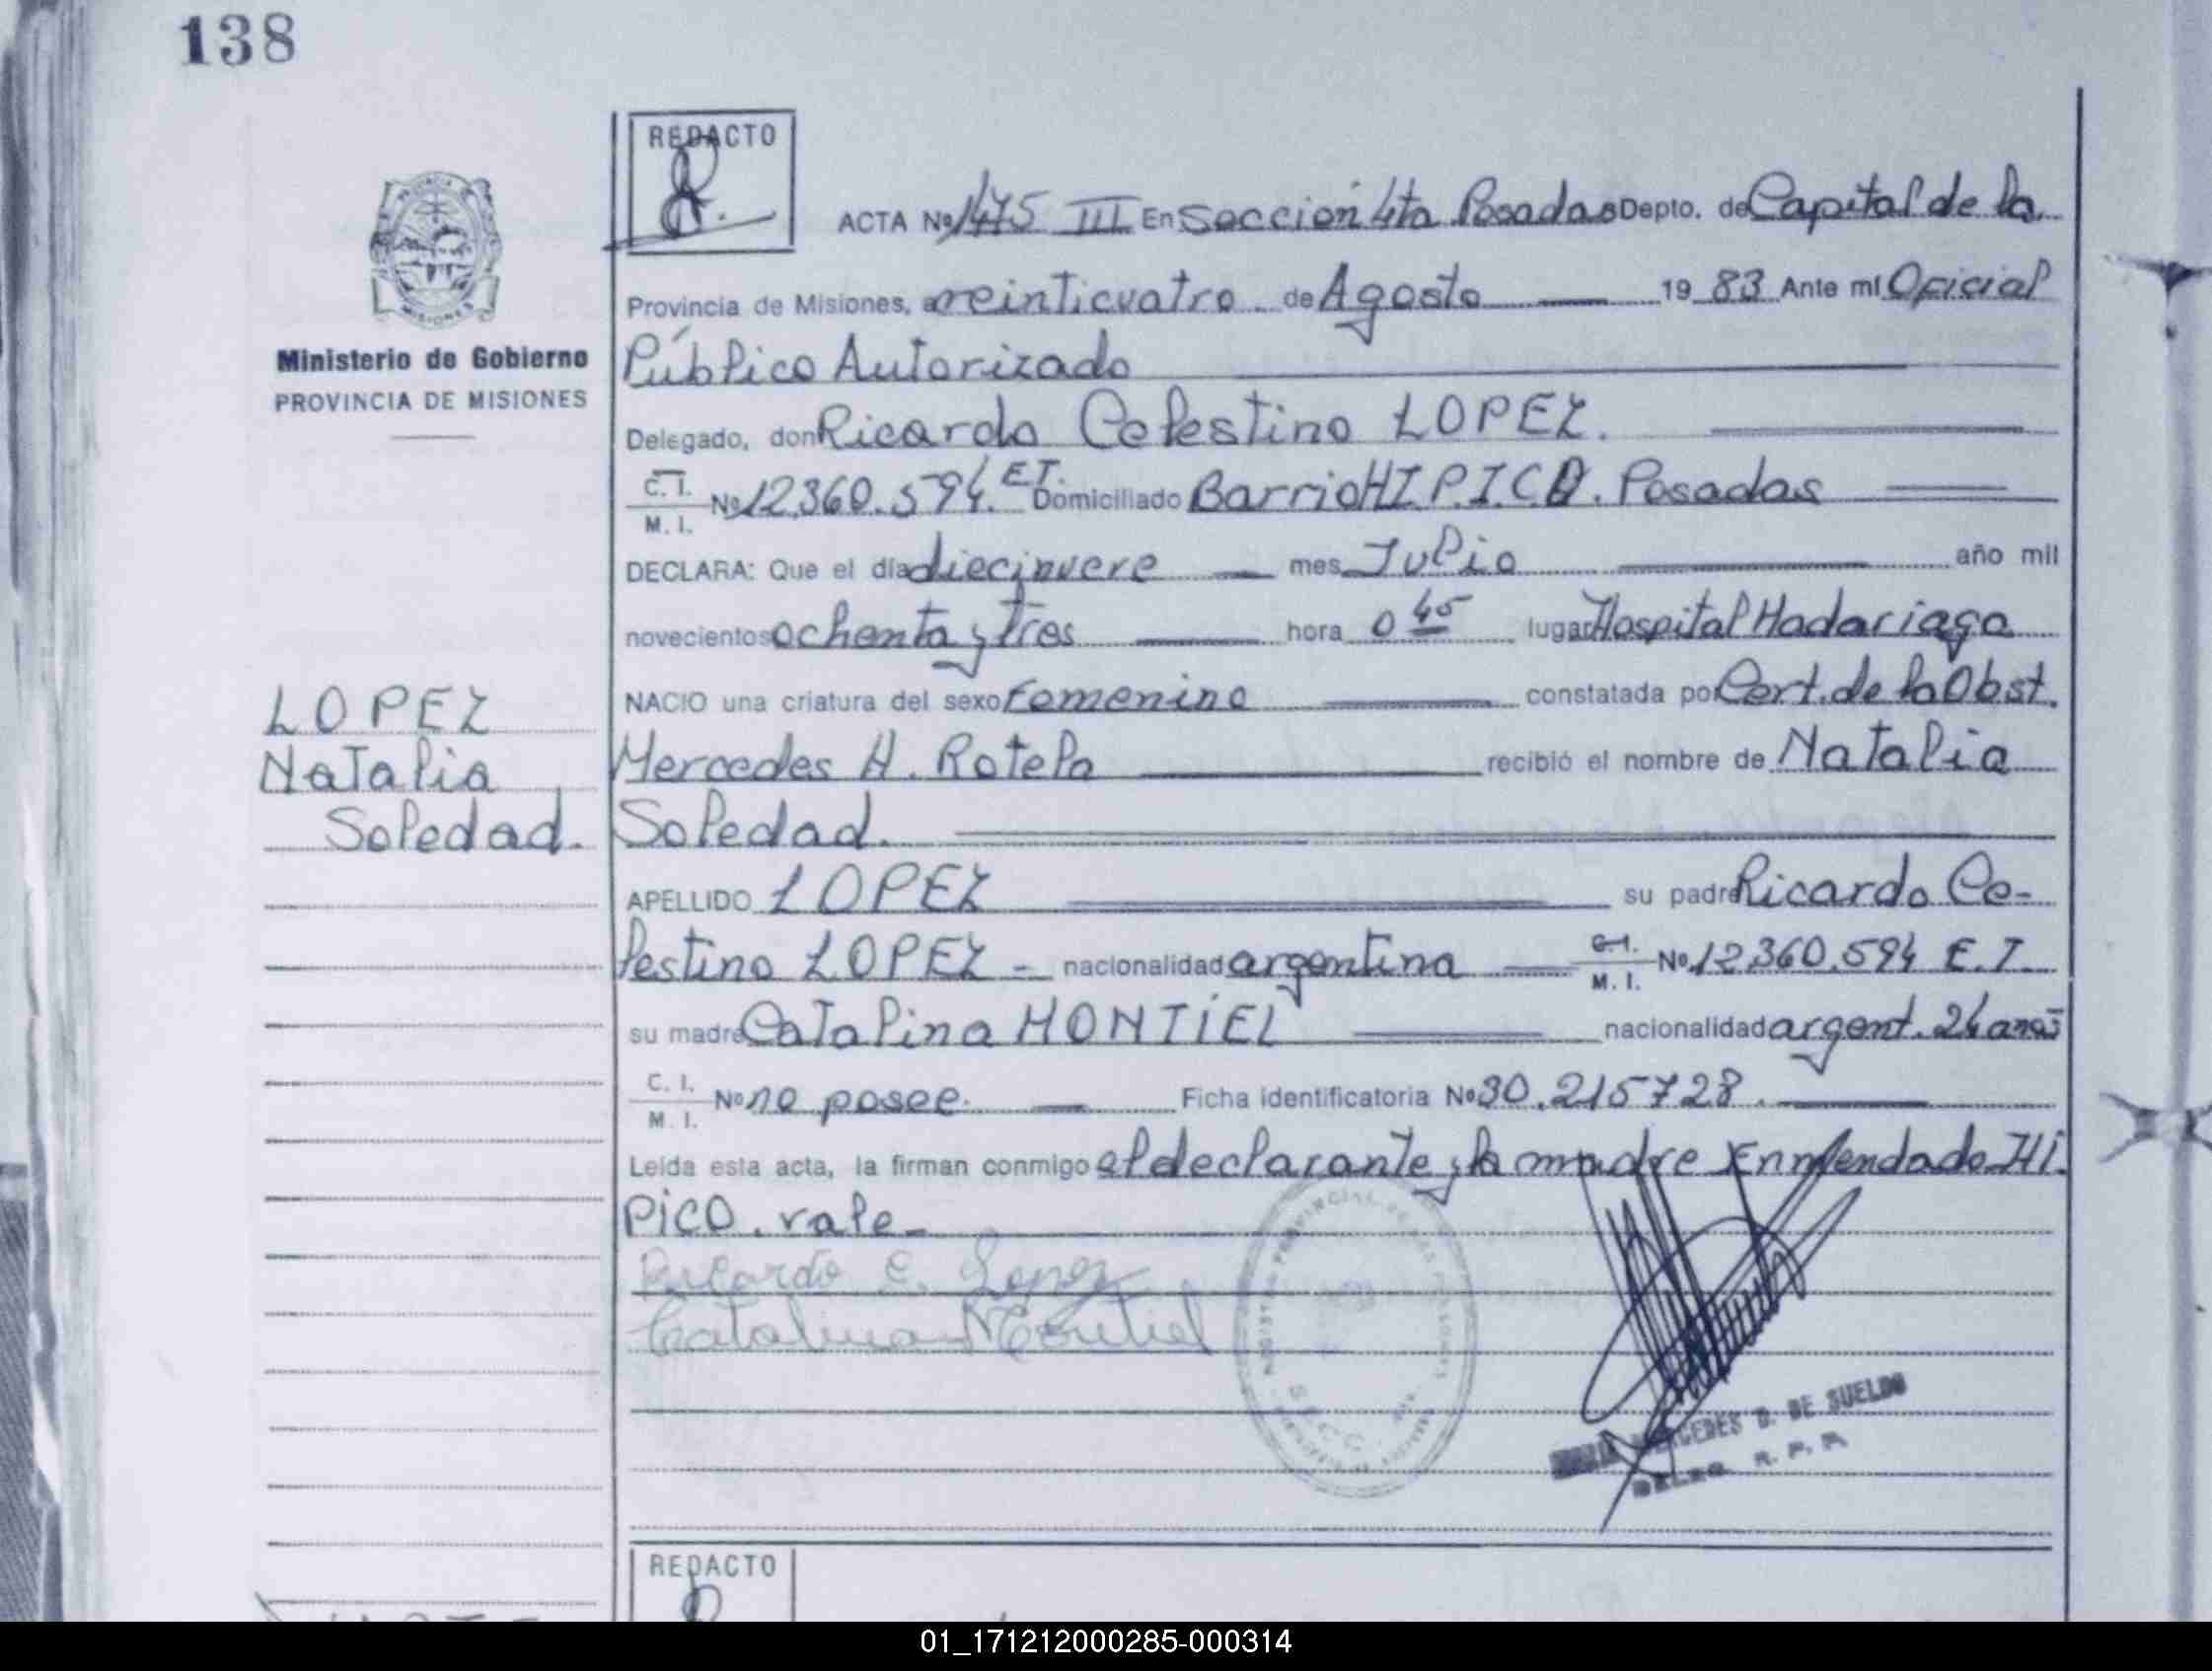 138
REDACTO
ACTA Nº 1475 III En Sección 4ta Posadas Depto. de Capital de la
Provincia de Misiones, a veinticuatro de Agosto 19 83 Ante mí Oficial
Público Autorizado
Ministerio de Gobierno
PROVINCIA DE MISIONES
Delegado, don Ricardo Celestino LOPEZ.
C. I. M. I. Nº 12.360.594. E.T. Domiciliado Barrio HIPICO. Posadas
DECLARA: Que el día diecinueve mes Julio año mil
novecientos ochenta y tres hora 0 45 lugar Hospital Madariaga
NACIO una criatura del sexo Femenino constatada por Cert. de la Obst.
LOPEZ
Natalia
Soledad.
Mercedes A. Rotela recibió el nombre de Natalia
Soledad.
APELLIDO LOPEZ su padre Ricardo Ce-
lestino LOPEZ - nacionalidad argentina C. I. M. I. Nº 12.360.594 E.T.
su madre Catalina MONTIEL nacionalidad argent. 24 años
C. I. M. I. Nº no posee. Ficha identificatoria Nº 30.215728.
Leída esta acta, la firman conmigo el declarante y la madre Enmendado HI.
PICO. vale-
Ricardo C. Lopez
Catalina Montiel
MERCEDES B. DE SUELDO
R. P. P.
REDACTO
01_171212000285-000314